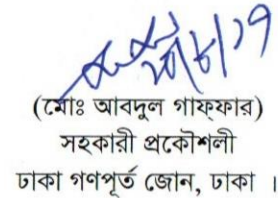 ২৮/৮/১৭
(মোঃ আবদুল গাফ্ফার)
সহকারী প্রকৌশলী
ঢাকা গণপূর্ত জোন, ঢাকা ।